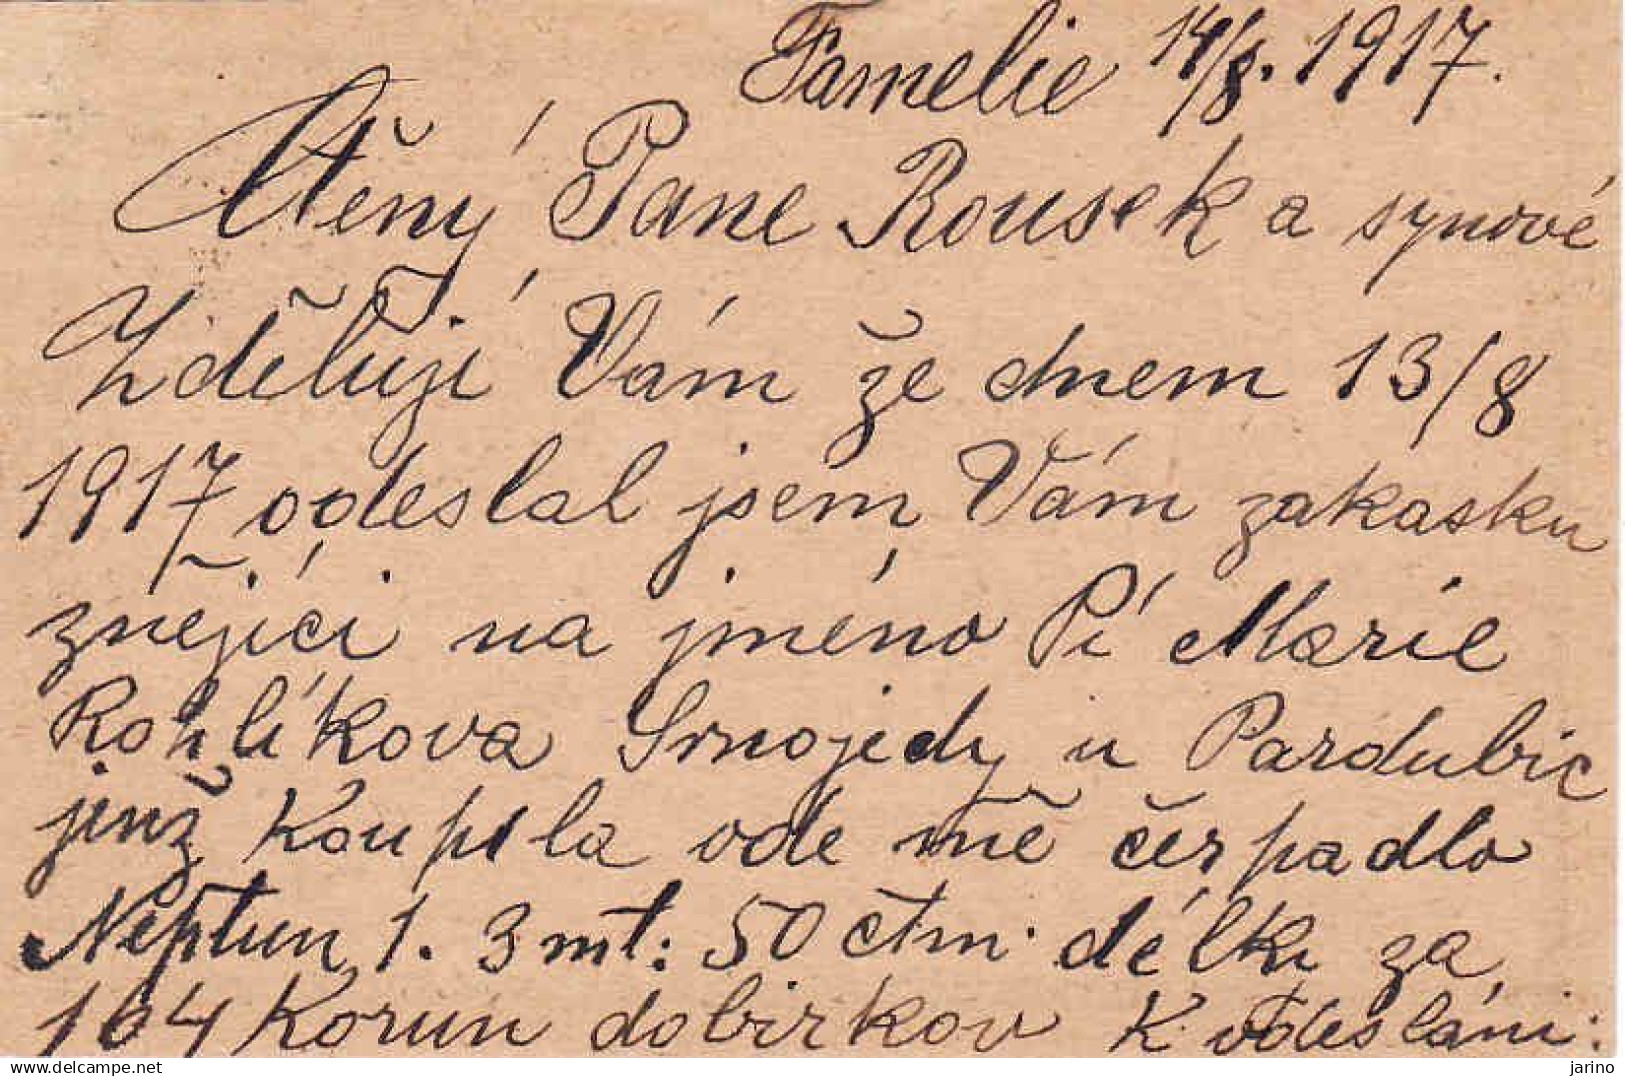 Famelie 14/8. 1917.
Ctěný Pane Rousek a synové
Zděluji Vám že dnem 13/8
1917 odeslal jsem Vám zakasku
znějící na jméno Pí Marie
Rohlíkova Srnojedy u Pardubic
jenž koupila ode mě čerpadlo
Neptun 1. 3 mt: 50 ctm. délki za
164 Korun dobirkou K odeslání:
delcampe.net
jarino